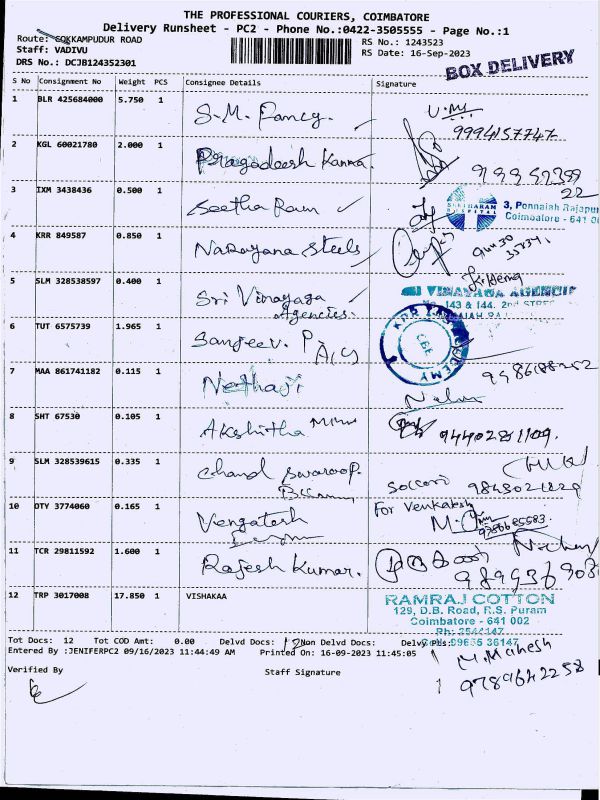 THE PROFESSIONAL COURIERS, COIMBATORE
Delivery Runsheet - PC2 - Phone No.:0422-3505555 - Page No.:1
Route: GOKKAMPUDUR ROAD
Staff: VADIVU
DRS No.: DCJB124352301
RS No.: 1243523
RS Date: 16-Sep-2023
BOX DELIVERY
S No Consignment No Weight PCS Consignee Details Signature
1 BLR 425684000 5.750 1 S.M. Fancy.
9994157747
2 KGL 60021780 2.000 1 Pragadeesh Kanna.
3 IXM 3438436 0.500 1 Seetha Ram
3, Ponnaiah Rajapur
Coimbatore - 641 0
4 KRR 849587 0.850 1 Narayana Steels
5 SLM 328538597 0.400 1 Sri Vinayaga Agencies.
SRI VINAYAGA AGENCIE
No. 143 & 144, 2nd STREE
6 TUT 6575739 1.965 1 Sanjeev. P
7 MAA 861741182 0.115 1 Nethaji
8 SHT 67530 0.105 1 Akshitha
9440281109.
9 SLM 328539615 0.335 1 Chand Swaroop.
10 OTY 3774060 0.165 1 Vengatesh
For Venkatesh
11 TCR 29811592 1.600 1 Rajesh Kumar.
12 TRP 3017008 17.850 1 VISHAKAA
RAMRAJ COTTON
129, D.B. Road, R.S. Puram
Coimbatore - 641 002
Ph: 2544147
Cell: 99655 36147
Tot Docs: 12 Tot COD Amt: 0.00 Delvd Docs: 12 Non Delvd Docs: Delvy Pls:
Entered By :JENIFERPC2 09/16/2023 11:44:49 AM Printed On: 16-09-2023 11:45:05
M. Mahesh
9789642258
Verified By Staff Signature